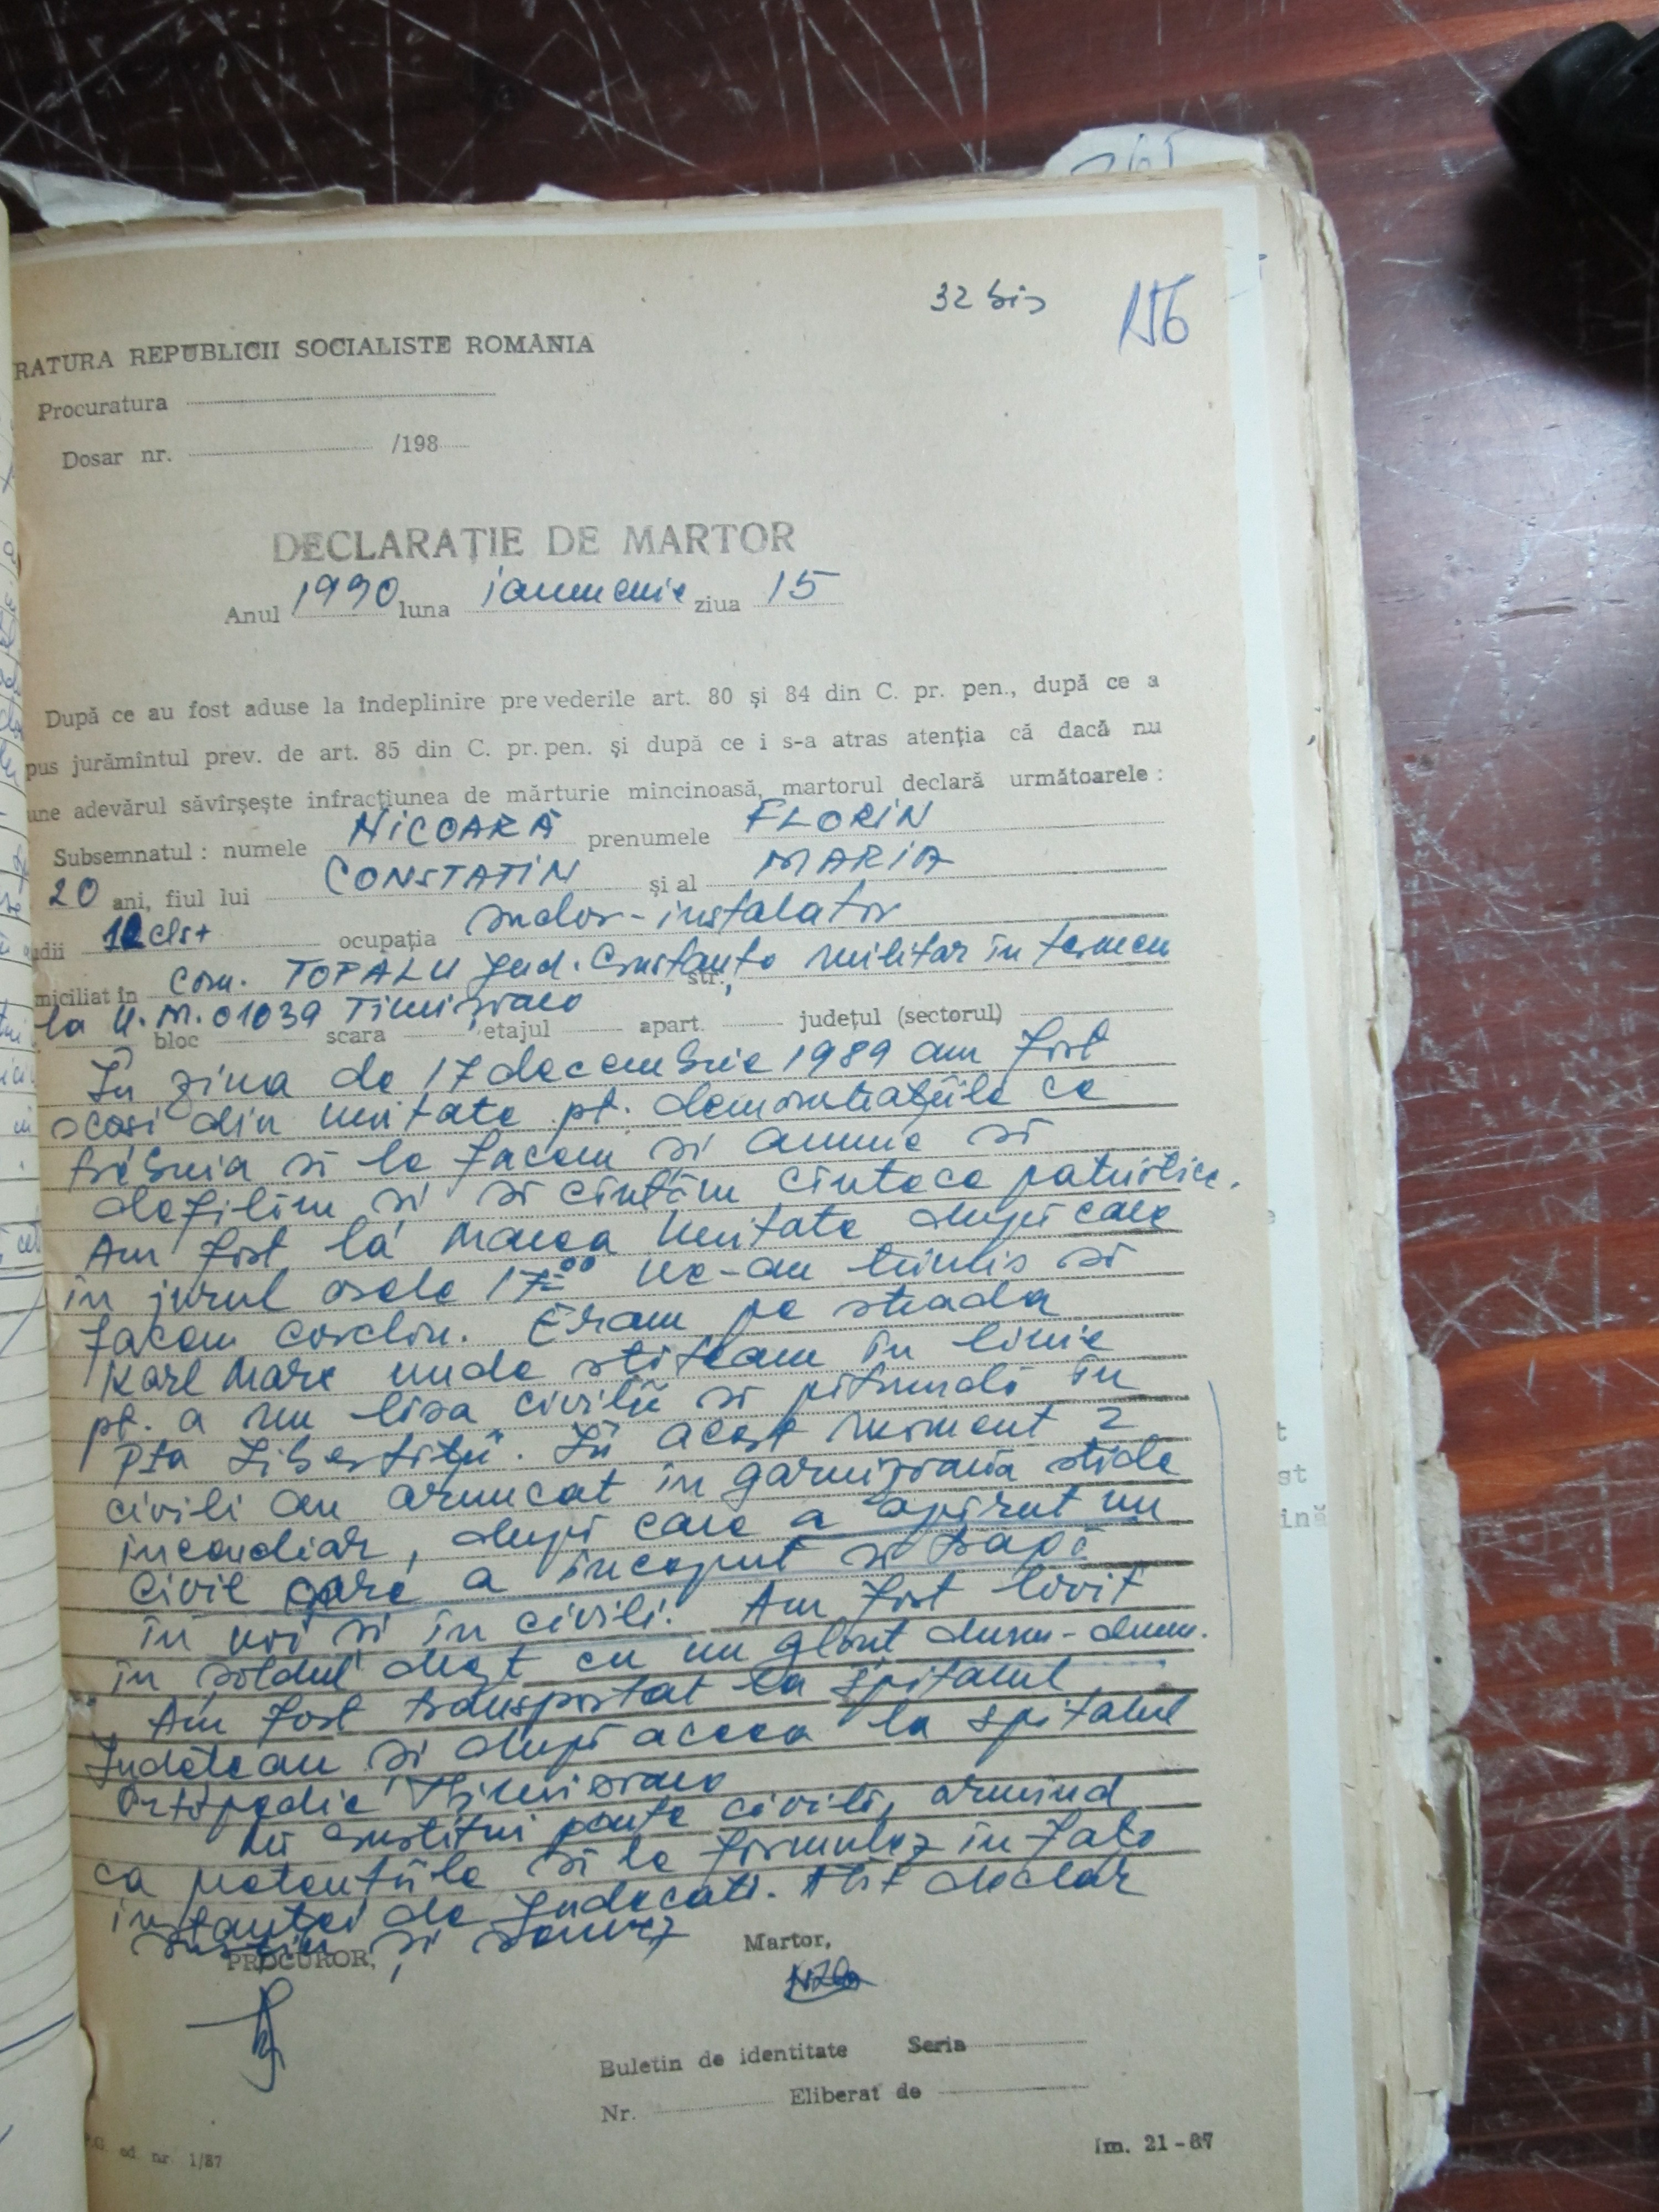 32 bis
156
RATURA REPUBLICII SOCIALISTE ROMÂNIA
Procuratura
Dosar nr. /198
DECLARAȚIE DE MARTOR
Anul 1990 luna ianuarie ziua 15
După ce au fost aduse la îndeplinire prevederile art. 80 și 84 din C. pr. pen., după ce a
pus jurămîntul prev. de art. 85 din C. pr. pen. și după ce i s-a atras atenția că dacă nu
une adevărul săvîrșește infracțiunea de mărturie mincinoasă, martorul declară următoarele :
Subsemnatul : numele NICOARĂ prenumele FLORIN
20 ani, fiul lui CONSTATIN și al MARIA
udii 12 cls+ ocupația sudor-instalator
miciliat în com. TOPALU jud. Constanța str. militar în termen
la U.M. 01039 Timișoara
bloc scara etajul apart. județul (sectorul)
În ziua de 17 decembrie 1989 am fost
scoși din unitate pt. demonstrațiile ce
trebuia să le facem și anume să
defilăm și să cîntăm cîntece patriotice.
Am fost la Marea Unitate după care
în jurul orele 17⁰⁰ ne-au trimis să
facem cordon. Eram pe strada
Karl Marx unde stăteam în linie
pt. a nu lăsa civilii să pătrundă în
Pța Libertății. În acest moment 2
civili au aruncat în garnizoană sticle
incendiar, după care a apărut un
civil care a început să tragă
în noi și în civili. Am fost lovit
în șoldul drept cu un glonț dum-dum.
Am fost transportat la spitalul
Județean și după aceea la spitalul
Ortopedie Timișoara
Mă constitui parte civilă, urmînd
ca pretențiile să le formulez în fața
instanței de judecată. Atît declar
susțin și semnez
PROCUROR,
Martor,
Buletin de identitate Seria
Nr. Eliberat de
P.G. ed. nr. 1/87
Îm. 21 - 87